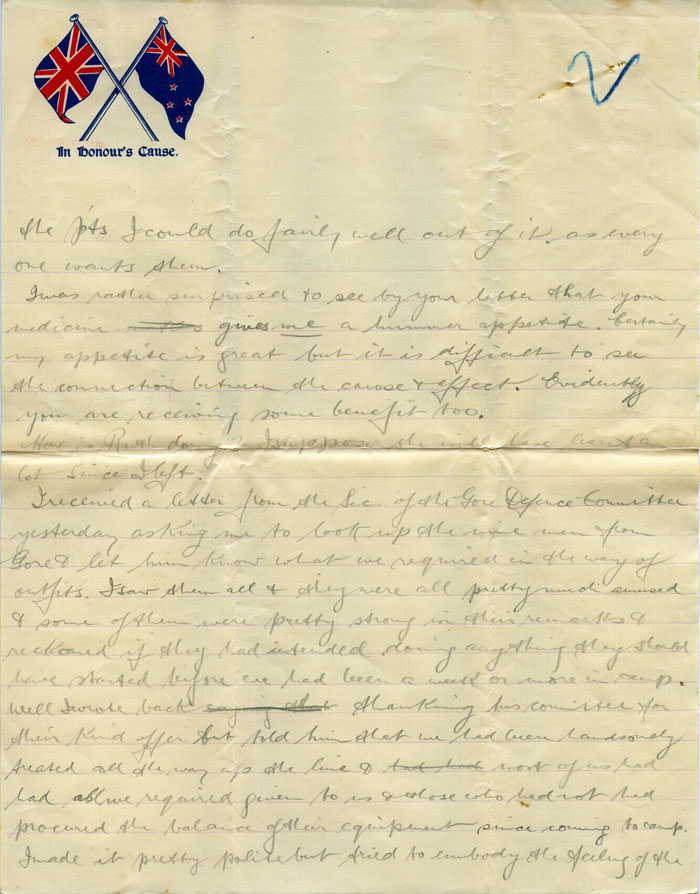 In Honour's Cause.
2
the p'ts I could do fairly well out of it, as every
one wants them.
I was rather surprised to see by your letter that your
medicine gives me a hummer appetite. Certainly
my appetite is great but it is difficult to see
the connection between the cause & effect. Evidently
you are receiving some benefit too.
How is Ruth doing? I suppose she will have learnt a
lot since I left.
I received a letter from the Sec. of the Gore Defence Committee
yesterday asking me to look up the nine men from
Gore & let him know what we required in the way of
outfits. I saw them all & they were all pretty much amused
& some of them were pretty strong in their remarks &
reckoned if they had intended doing anything they should
have started before we had been a week or more in camp.
Well I wrote back saying that thanking his committee for
their kind offer but told him that we had been handsomely
treated all the way up the line & had had most of us had
had all we required given to us & those who had not had
procured the balance of their equipment since coming to camp.
I made it pretty polite but tried to embody the feeling of the